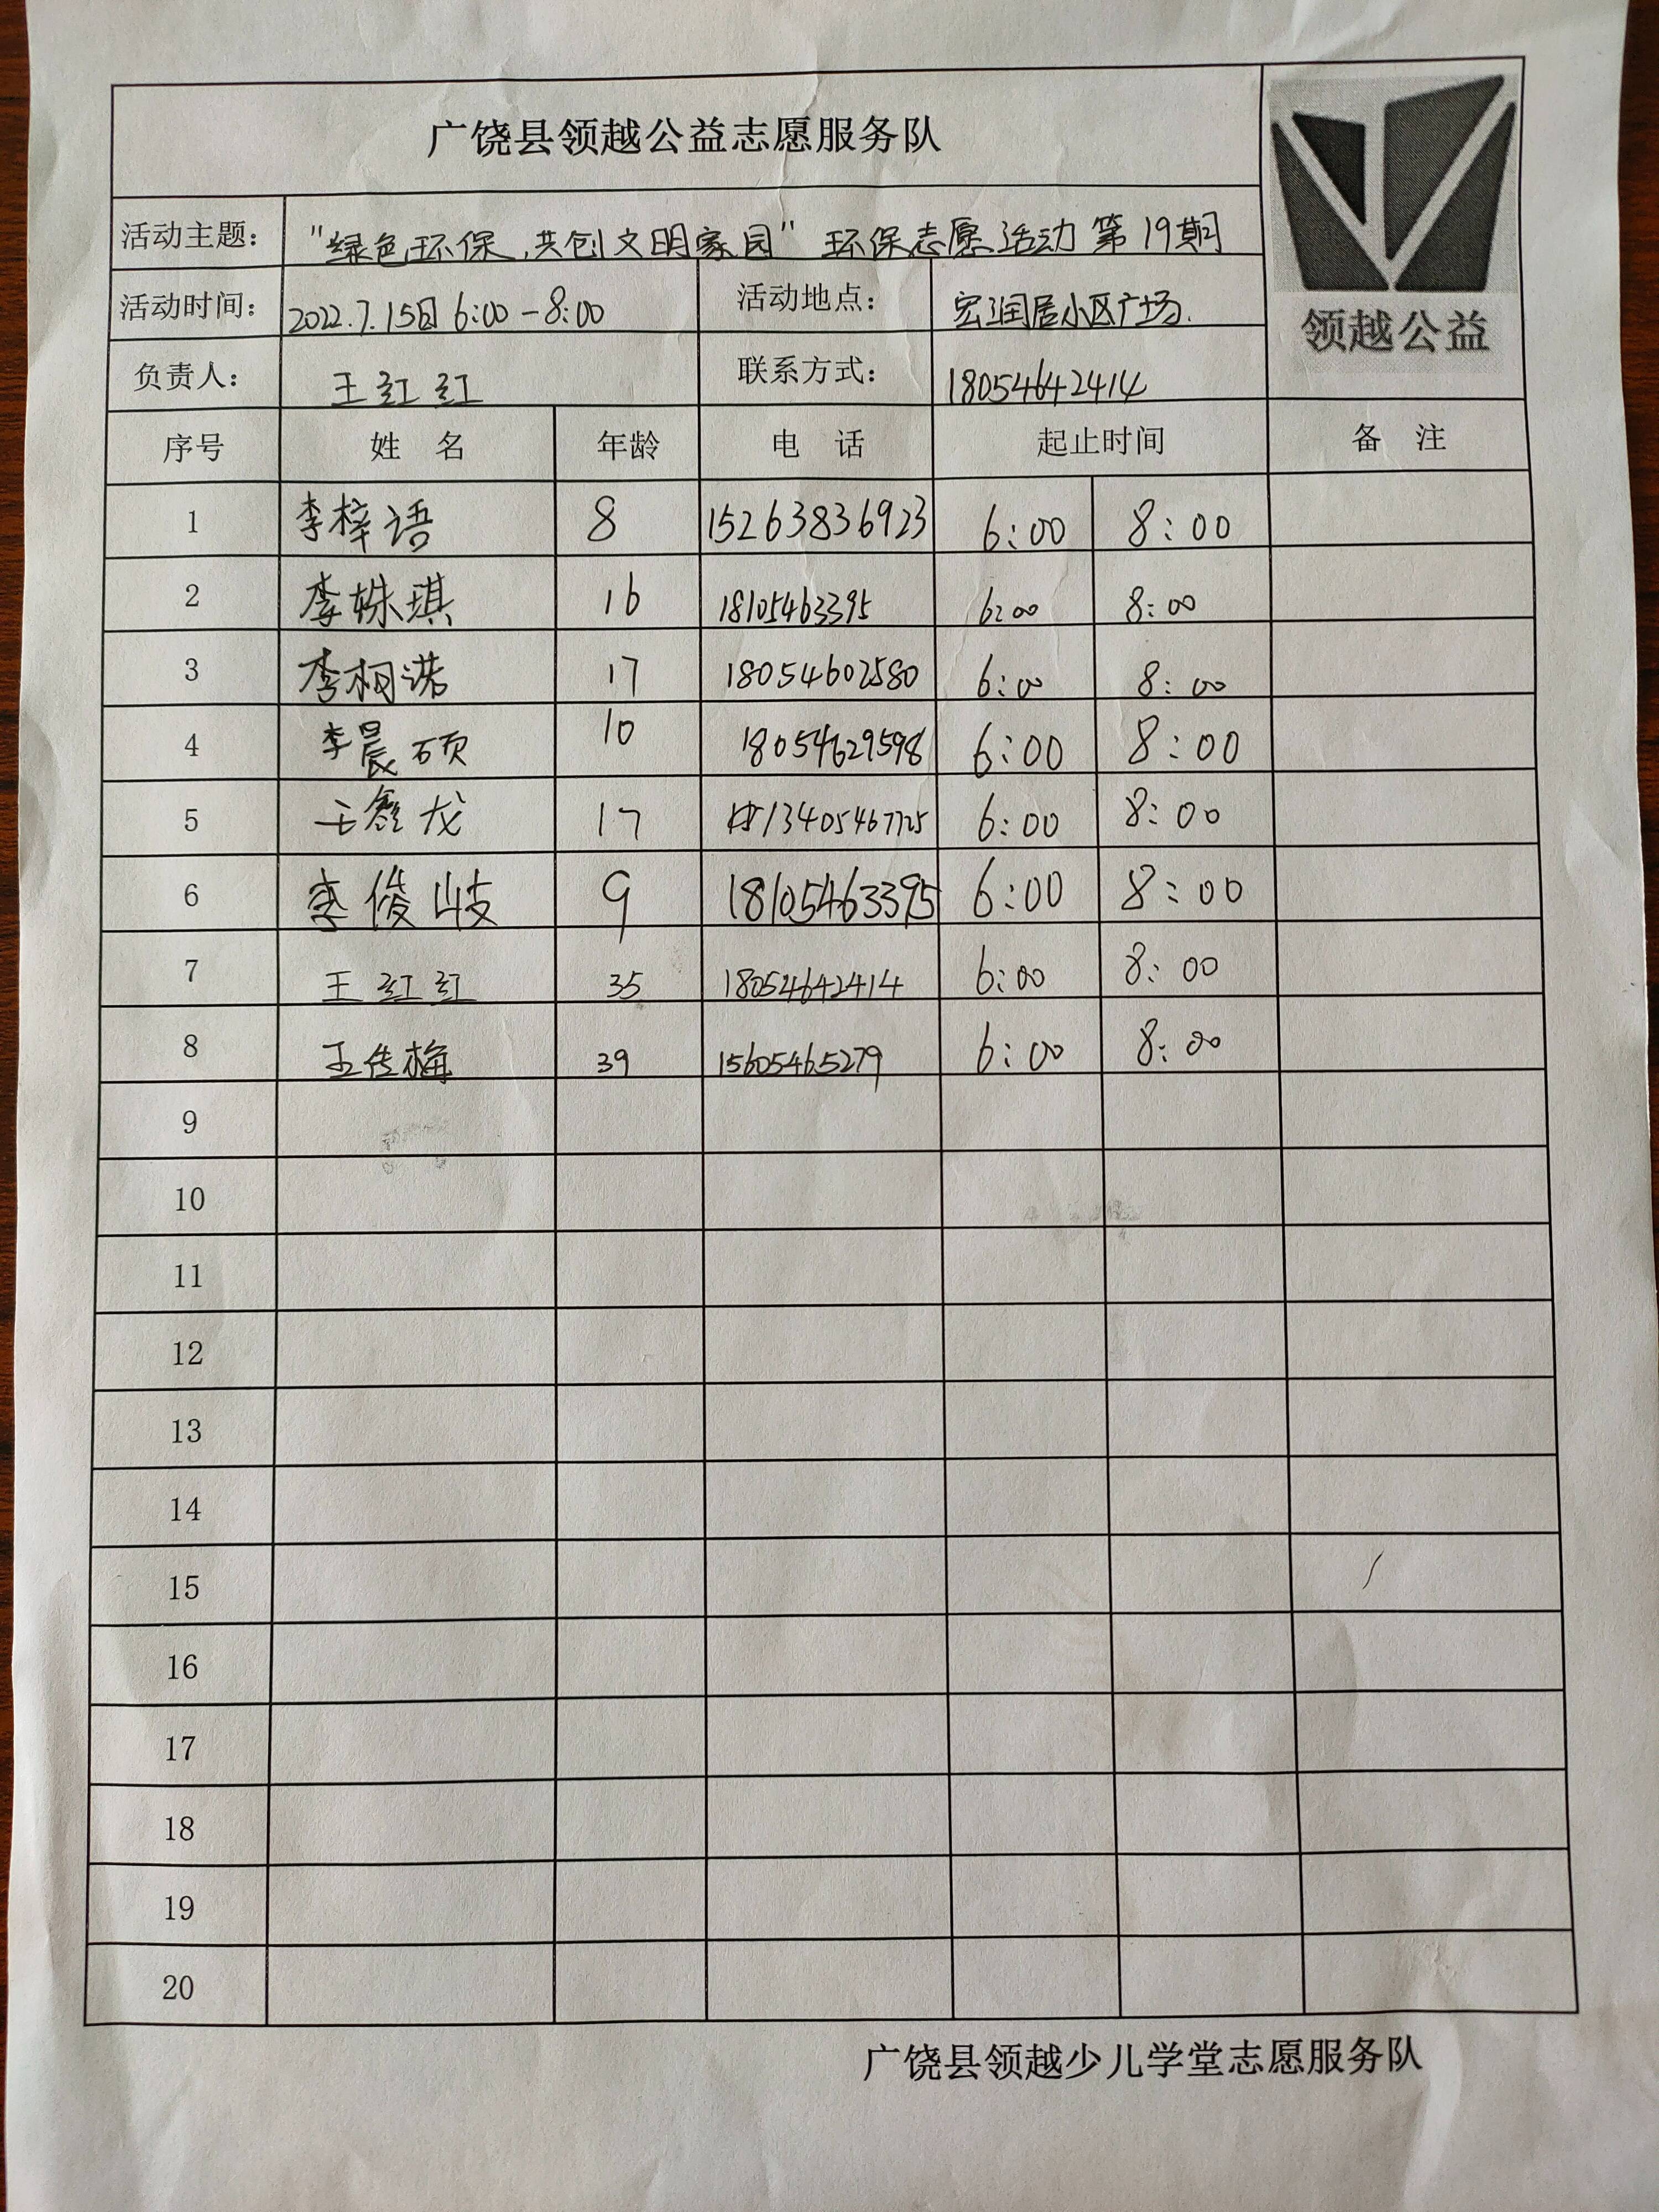 广饶县领越公益志愿服务队
领越公益
活动主题： "绿色环保,共创文明家园"环保志愿活动 第19期
活动时间： 2022.7.15日 6:00-8:00 活动地点： 宏润居小区广场.
负责人： 王红红 联系方式： 18054642414
序号 姓 名 年龄 电 话 起止时间 备 注
1 李梓语 8 15263836923 6:00 8:00
2 李姝琪 16 18105463395 6:00 8:00
3 李柯诺 17 18054602580 6:00 8:00
4 李晨硕 10 18054629598 6:00 8:00
5 王鑫龙 17 13405467725 6:00 8:00
6 李俊岐 9 18105463395 6:00 8:00
7 王红红 35 18054642414 6:00 8:00
8 王传梅 39 15605465279 6:00 8:00
9
10
11
12
13
14
15
16
17
18
19
20
广饶县领越少儿学堂志愿服务队